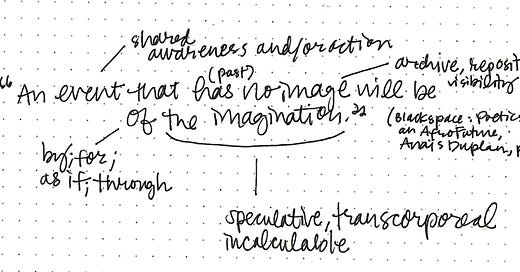 shared
awareness and/or action
(past)
archive, reposit
visibility
"An event that has no image will be
of the imagination."
(Blackspace: Poetics
an Afrofuture,
Anaïs Duplan, p
by; for;
as if; through
speculative, transcorporeal
incalculable